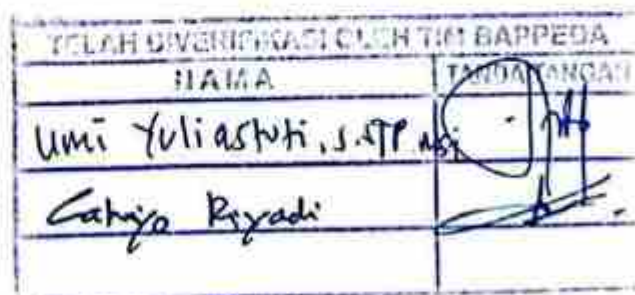 TELAH DIVERIFIKASI OLEH TIM BAPPEDA
NAMA TANDA TANGAN
Umi Yuliastuti, S.STP MSi
Cahyo Riyadi